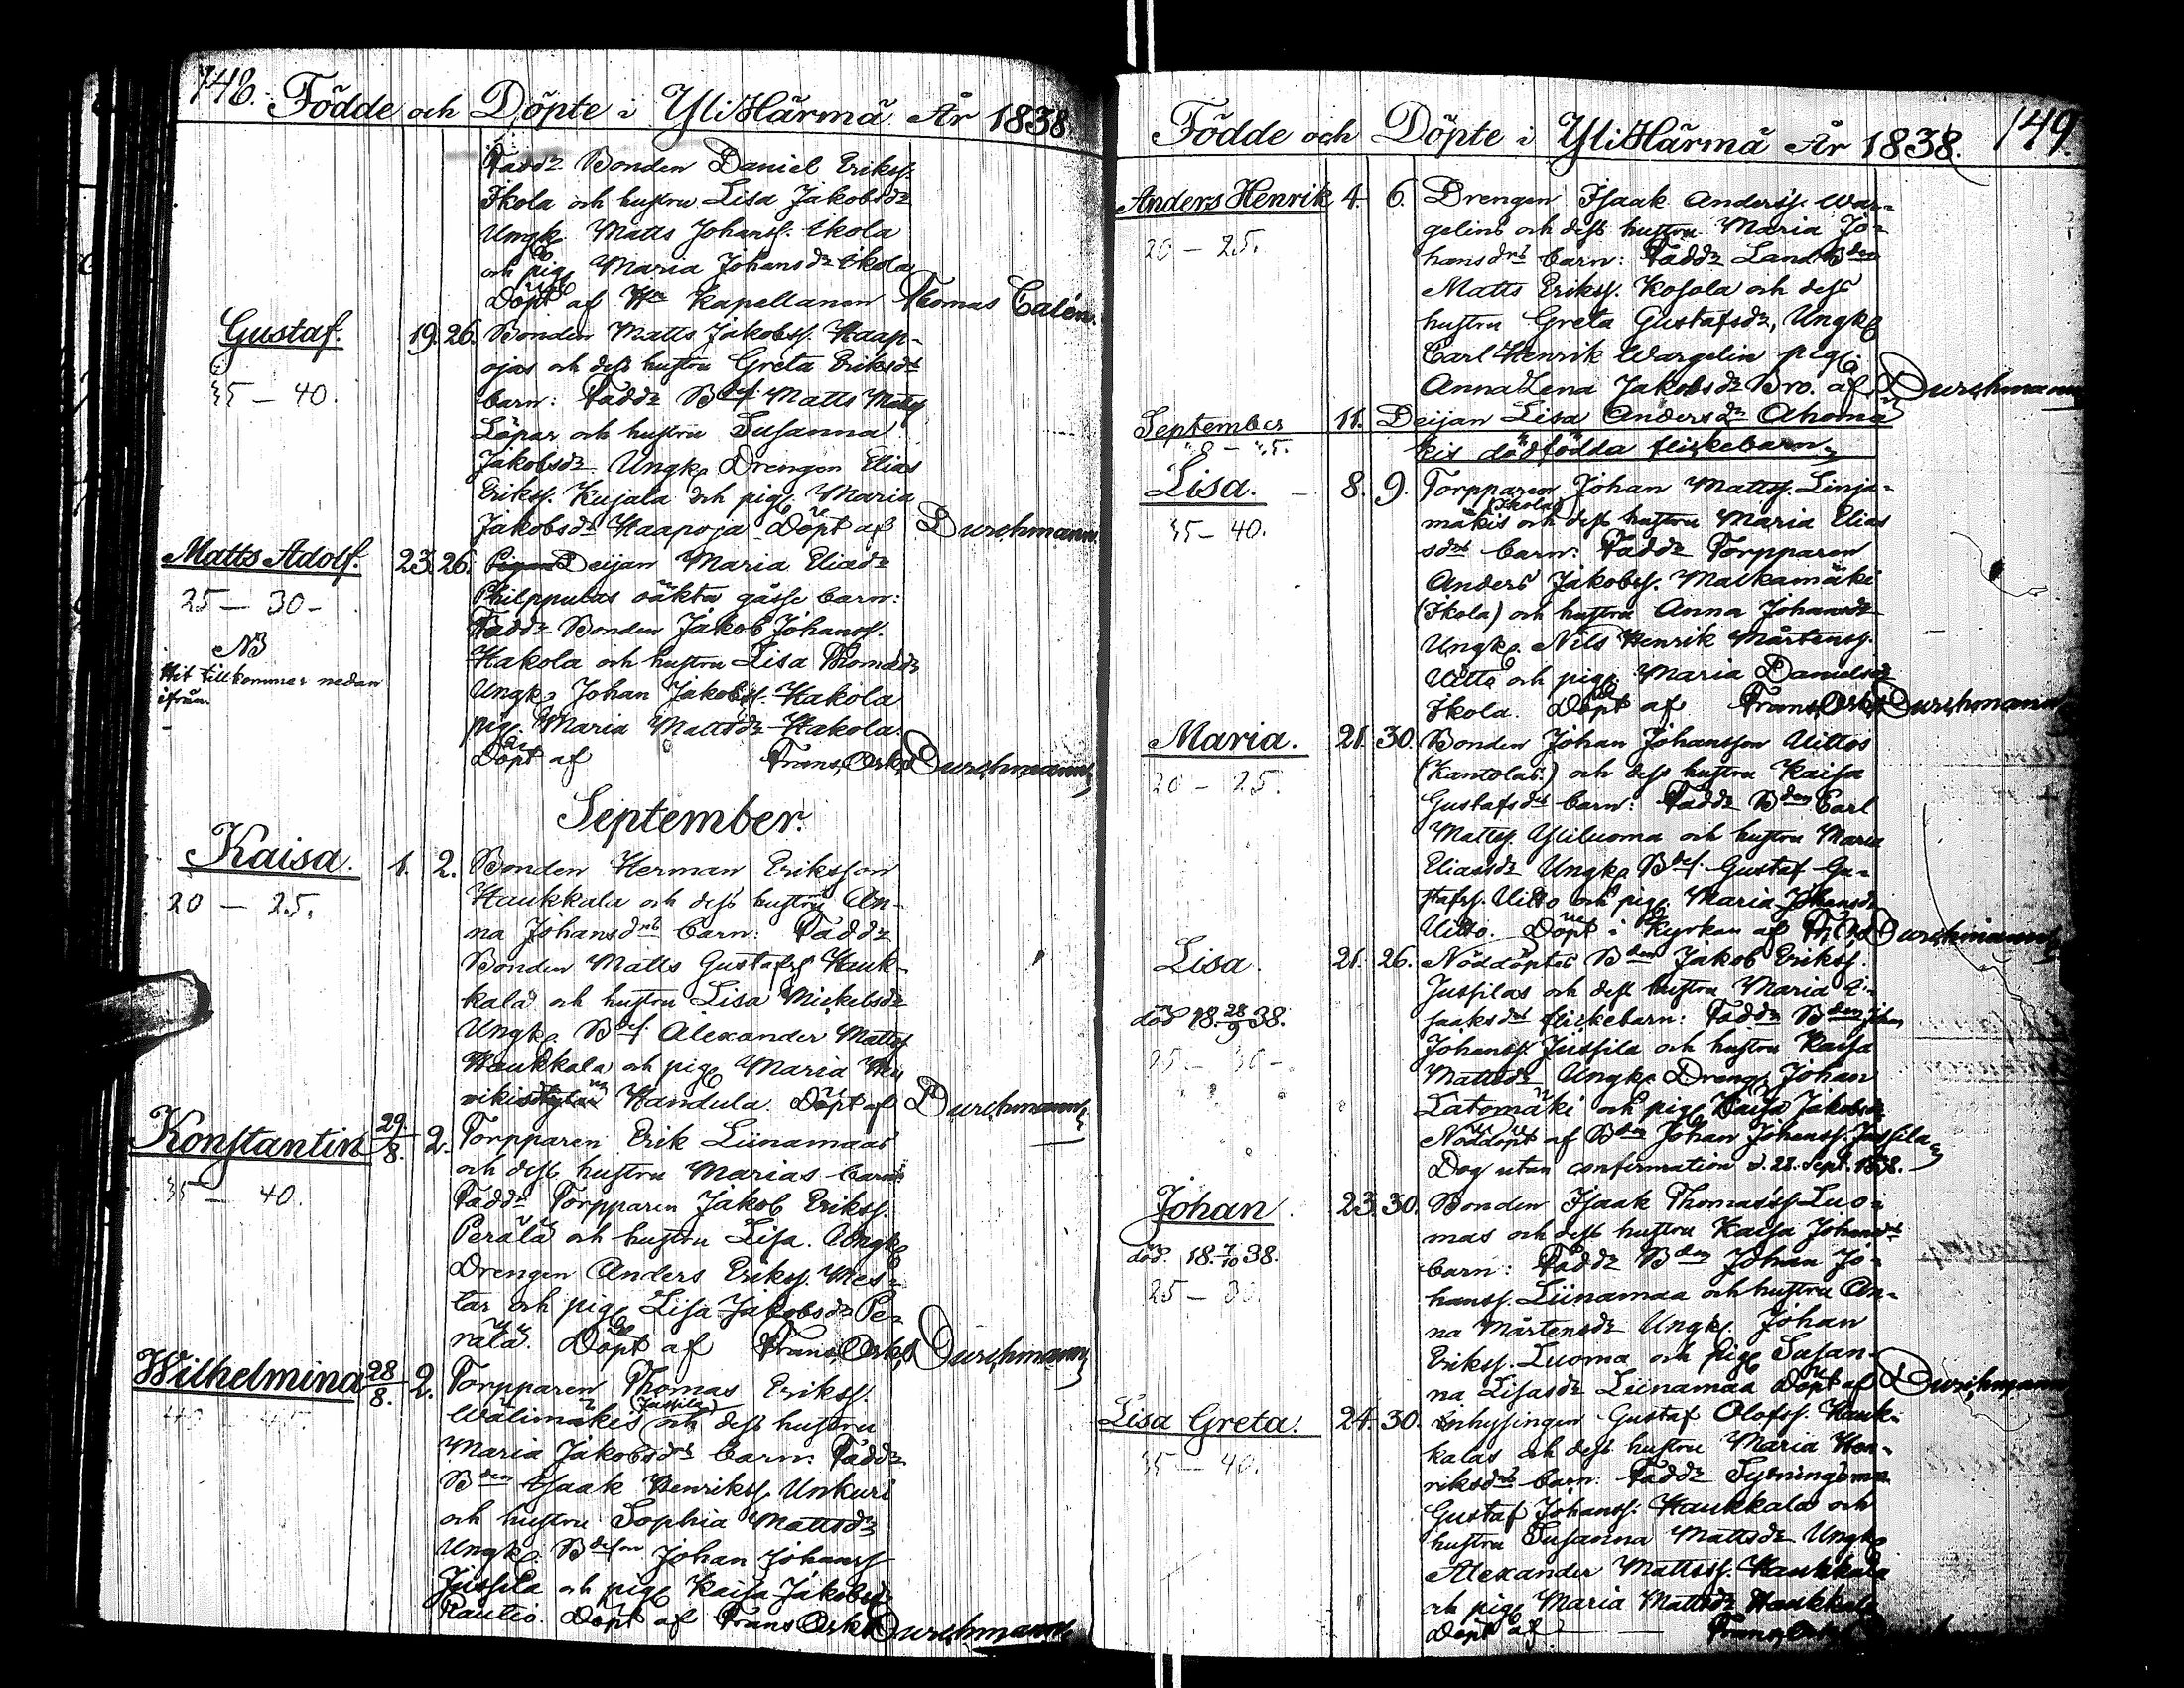 148. Födde och Döpte i YliHärmä År 1838
Fadd: Bonden Daniel Erikss.
Ekola och hustru Lisa Jakobsdr
Ungk. Matts Johanss. Ekola
och pig. Maria Johansdr Ekola
Döpt af Hr Kapellanen Thomas Calén.
Gustaf. 19. 26. Bonden Matts Jakobss. Haap-
35 – 40. ojas och dess hustru Greta Eriksdrs
barn: Fadd: Matts
Löpar och hustru Susanna
Jakobsdr. Ungk. Drengen Elias
Erikss. Kujala och pig. Maria
Jakobsdr Haapoja. Döpt af Durchmann.
Matts Adolf. 23. 26. Deijan Maria Eliadr
25 – 30 – Philppulas oäkta gosse barn:
Fadd: Bonden Jakob Johanss.
NB Hakola och hustru Lisa Thomasdr
Hit tillkommer nedan Ungk. Johan Jakobss. Hakola
ifrån. pig. Maria Mattsdr Hakola.
Döpt af Frans Osk. Durchmann
September.
Kaisa. 1. 2. Bonden Herman Eriksson
20 – 25. Haukkala och dess hustru An-
na Johansdrs barn: Fadd:
Bonden Matts Gustafss Hauk-
kala och hustru Lisa Mickelsdr
Ungk. Alexander Mattss
Haukkala och pig. Maria
Handula. Döpt af Durchmann
Konstantin 29./8. 2. Torpparen Erik Liinamaas
35 – 40. och dess hustru Marias barn
Fadd: Torpparen Jakob Erikss.
Perälä och hustru Lisa. Ungk.
Drengen Anders Erikss. Mes-
tar och pig. Lisa Jakobsdr Pe-
rälä. Döpt af Frans Osk. Durchmann
Wilhelmina 28/8. 2. Torpparen Thomas Erikss.
Wälimäkis (Jussila) och dess hustru
Maria Jakobsdrs barn: Fadd:
Bden Isaak Henrikss. Unkuri
och hustru Sophia Mattsdr
Ungk. Johan Johanss
Jussila och pig. Kaisa Jakobsdr
Rautio. Döpt af Frans Osk. Durchmann
Födde och Döpte i YliHärmä År 1838. 149.
Anders Henrik 4. 6. Drengen Isaak Anderss. War-
20 – 25. gelins och dess hustru Maria Jo-
hansdrs barn: Fadd: Landbden
Matts Erikss. Kosola och dess
hustru Greta Gustafsdr, Ungk.
Carl Henrik Wargelin pig.
Anna Lena Jakobsdr Bro. af Durchmann
September 11. Deijan Lisa Andersdr Ahoma
kis dödfödda flickebarn.
Lisa. 8. 9. Torpparen Johan Mattss. Linja-
35 – 40. mäkis (Ekola) och dess hustru Maria Elias
sdrs barn: Fadd: Torpparen
Anders Jakobss. Maikamäki
(Ekola) och hustru Anna Johansdr
Ungk. Nils Henrik Mårtenss.
Uitto och pig. Maria Danielsdr
Ekola. Döpt af Frans Osk. Durchmann
Maria. 21. 30. Bonden Johan Johansson Uittos
20 – 25. (Kantolas) och dess hustru Kaisa
Gustafsdrs barn: Fadd: Bden Carl
Mattss. Yliluoma och hustru Maria
Eliasdr Ungk. Gustaf Gu-
stafss. Uitto och pig. Maria Johansdr
Uitto. Döpt i Kyrkan af Durchmann
Lisa. 21. 26. Nöddöptes Bden Jakob Erikss.
Jussilas och dess hustru Maria I-
död 18.28/9 38. saaksdrs flickebarn: Fadd: Bden Johan
Johanss. Jussila och hustru Kaisa
25 – 30 – Mattsdr Ungk. Dreng. Johan
Latomäki och pig. Kaisa Jakobsdr
Nöddöpt af Bden Johan Johanss. Jussila
Dog utan confirmation d. 28. Sept. 1838.
Johan. 23. 30. Bonden Isaak Thomass. Luo-
mas och dess hustru Kaisa Johansdrs
död. 18.7/10 38. barn: Fadd: Bden Johan Jo-
25 – 30 hanss. Liinamaa och hustru An-
na Mårtensdr Ungk. Johan
Erikss. Luoma och pig. Susan-
na Lisasdr Liinamaa Döpt af Durchmann
Lisa Greta. 24. 30. Inhysingen Gustaf Olofss. Hauk-
35 – 40. kalas och dess hustru Maria Hen-
riksdrs barn: Fadd: Sytningsman
Gustaf Johanss. Haukkala och
hustru Susanna Mattsdr Ungk.
Alexander Mattss. Haukkala
och pig. Maria Mattsdr Haukkala
Döpt af